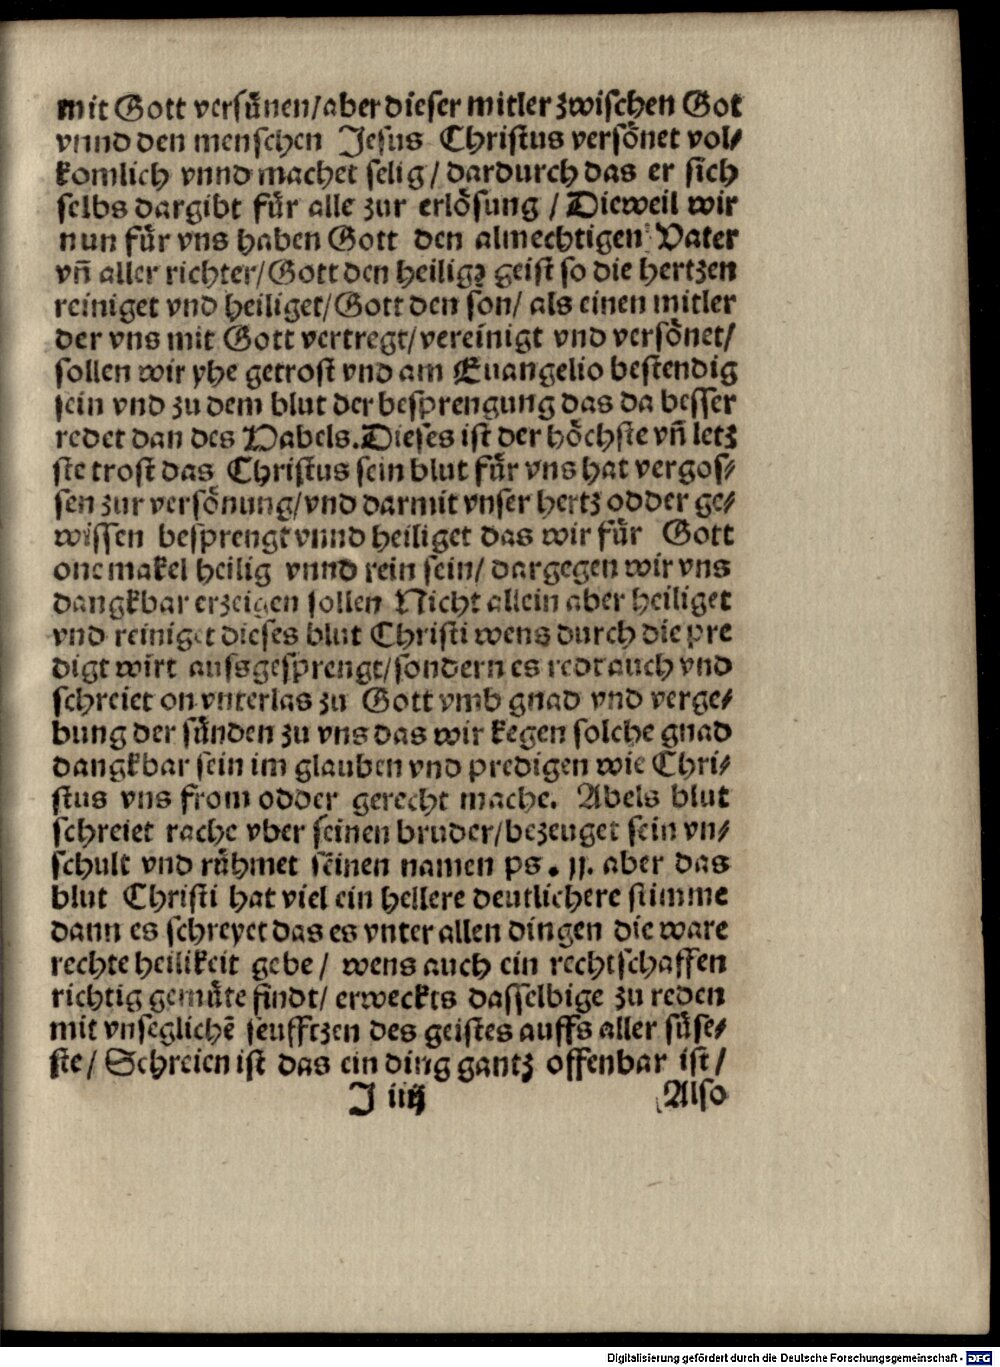 mit Gott versůnen/aber dieser mitler zwischen Got
vnnd den menschen Jesus Christus versönet vol⸗
komlich vnnd machet selig/ dardurch das er sich
selbs dargibt für alle zur erlösung /Dieweil wir
nun für vns haben Gott den almechtigen Vater
vñ aller richter/Gott den heiligẽ geist so die hertzen
reiniget vnd heiliget/Gott den son/ als einen mitler
der vns mit Gott vertregt/vereinigt vnd versönet/
sollen wir yhe getrost vnd am Euangelio bestendig
sein vnd zu dem blut der besprengung das da besser
redet dan des Habels.Dieses ist der höchste vñ letz
ste trost das Christus sein blut für vns hat vergos⸗
sen zur versönung/vnd darmit vnser hertz odder ge⸗
wissen besprengt vnnd heiliget das wir für Gott
one makel heilig vnnd rein sein/ dargegen wir vns
dangkbar erzeigen sollen Nicht allein aber heiliget
vnd reiniget dieses blut Christi wens durch die pre
digt wirt aussgesprengt/sondern es redt auch vnd
schreiet on vnterlas zu Gott vmb gnad vnd verge⸗
bung der sünden zu vns das wir kegen solche gnad
dangkbar sein im glauben vnd predigen wie Chri⸗
stus vns from odder gerecht mache. Abels blut
schreiet rache vber seinen bruder/bezeuget sein vn⸗
schult vnd rühmet seinen namen ps. 11. aber das
blut Christi hat viel ein hellere deutlichere stimme
dann es schreyet das es vnter allen dingen die ware
rechte heilikeit gebe/ wens auch ein rechtschaffen
richtig gemüte findt/ erweckts dasselbige zu reden
mit vnseglichẽ seufftzen des geistes auffs aller süse⸗
ste/ Schreien ist das ein ding gantz offenbar ist/
J iiij Also
Digitalisierung gefördert durch die Deutsche Forschungsgemeinschaft - DFG